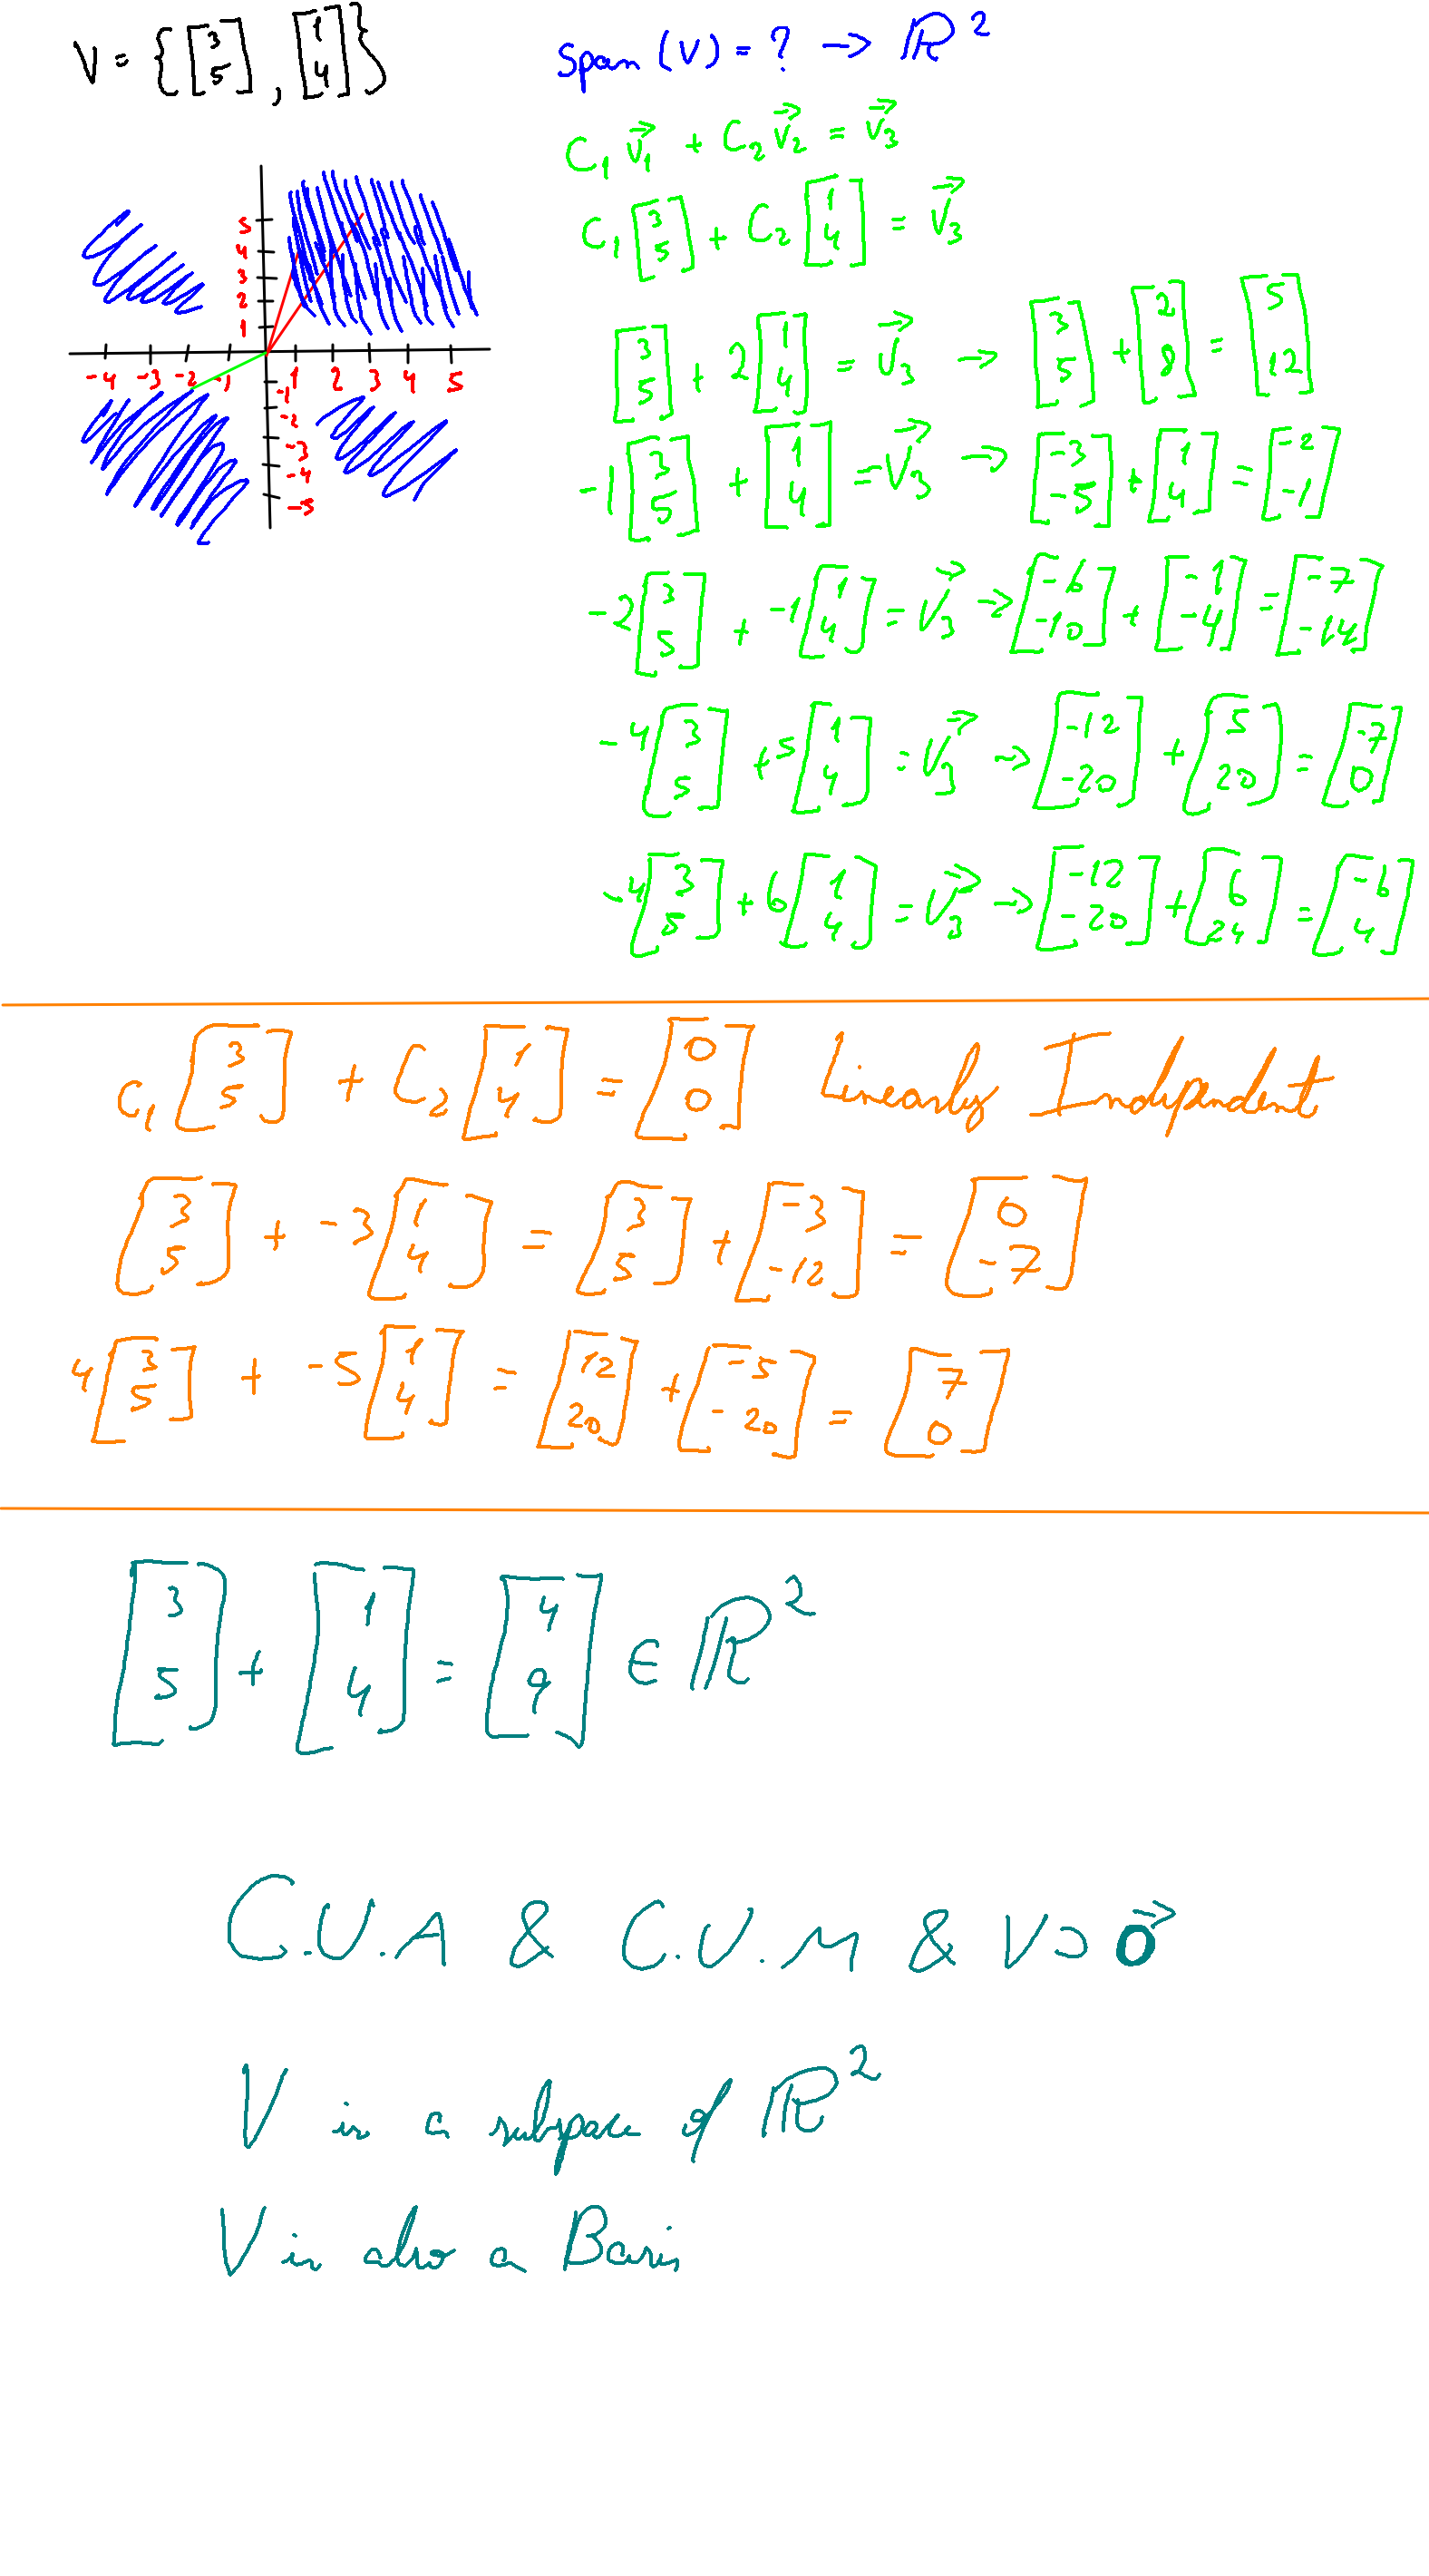 V = {[3 5], [1 4]}
span (V) = ? → ℝ²
C₁ v₁⃗ + C₂ v₂⃗ = v₃⃗
C₁ [3 5] + C₂ [1 4] = v₃⃗
[3 5] + 2 [1 4] = v₃⃗ → [3 5] + [2 8] = [5 12]
-1 [3 5] + [1 4] = v₃⃗ → [-3 -5] + [1 4] = [-2 -1]
-2 [3 5] + -1 [1 4] = v₃⃗ → [-6 -10] + [-1 -4] = [-7 -14]
-4 [3 5] + 5 [1 4] = v₃⃗ → [-12 -20] + [5 20] = [-7 0]
-4 [3 5] + 6 [1 4] = v₃⃗ → [-12 -20] + [6 24] = [-6 4]
5
4
3
2
1
-4 -3 -2 -1 1 2 3 4 5
-1
-2
-3
-4
-5
C₁ [3 5] + C₂ [1 4] = [0 0] Linearly Independent
[3 5] + -3 [1 4] = [3 5] + [-3 -12] = [0 -7]
4 [3 5] + -5 [1 4] = [12 20] + [-5 -20] = [7 0]
[3 5] + [1 4] = [4 9] ∈ ℝ²
C.U.A & C.U.M & V ⊃ 0⃗
V is a subspace of ℝ²
V is also a Basis